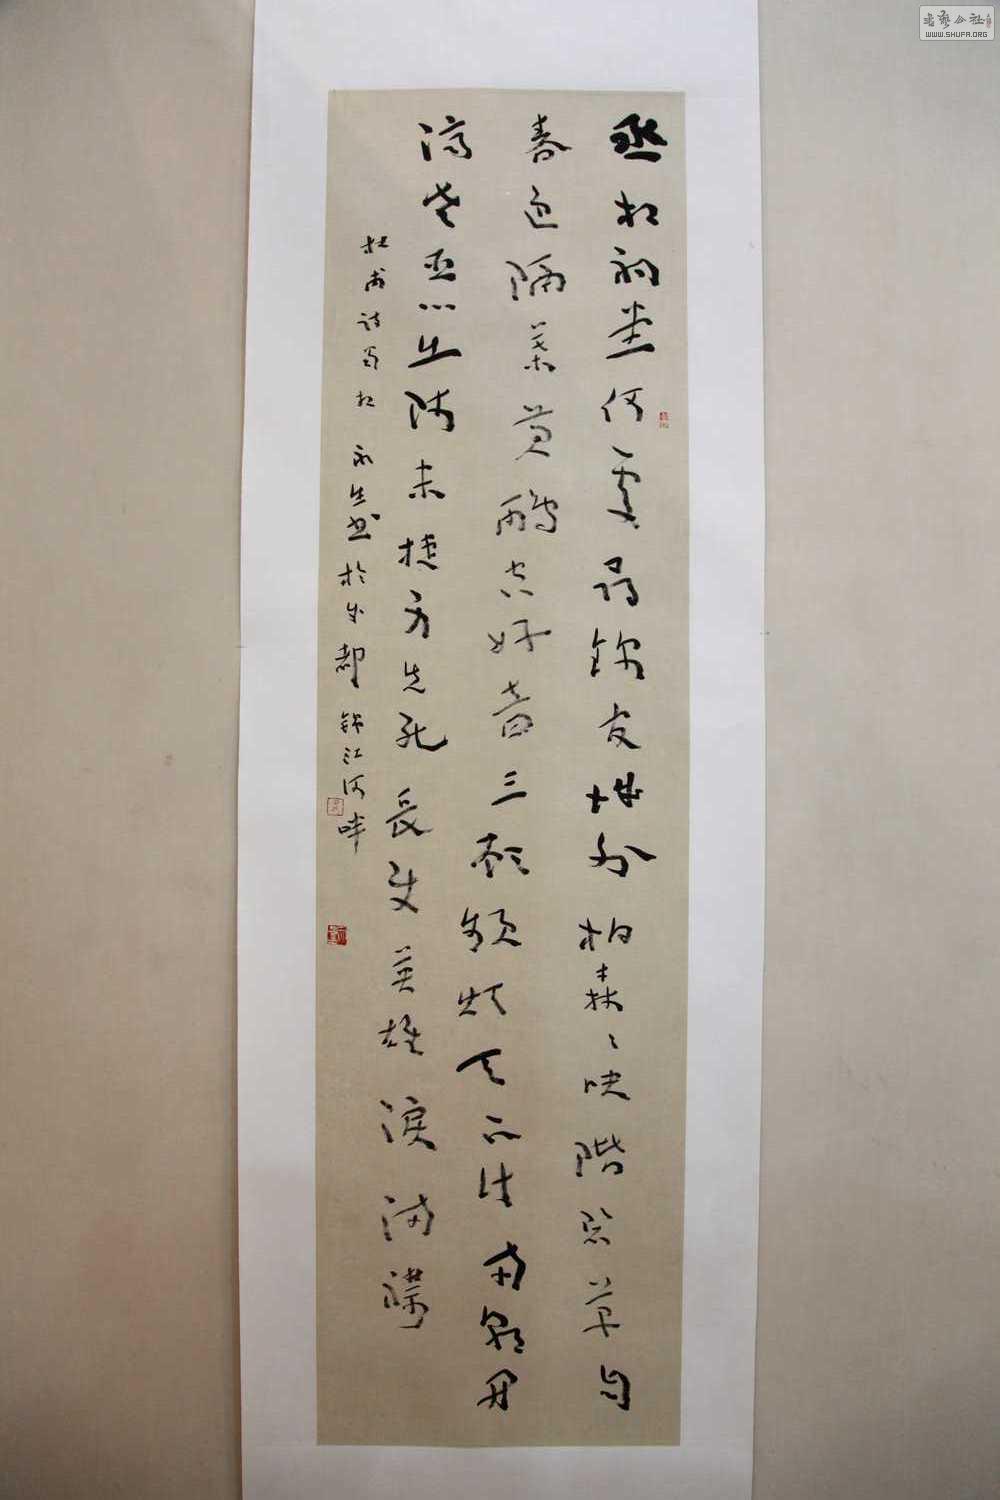 丞相祠堂何處尋錦官城外柏森〻映階碧草自
春色隔葉黃鸝空好音三顧頻煩天下計兩朝開
濟老臣心出師未捷身先死長使英雄淚滿襟
杜甫詩蜀相 永生書於成都錦江河畔
书艺公社
WWW.SHUFA.ORG